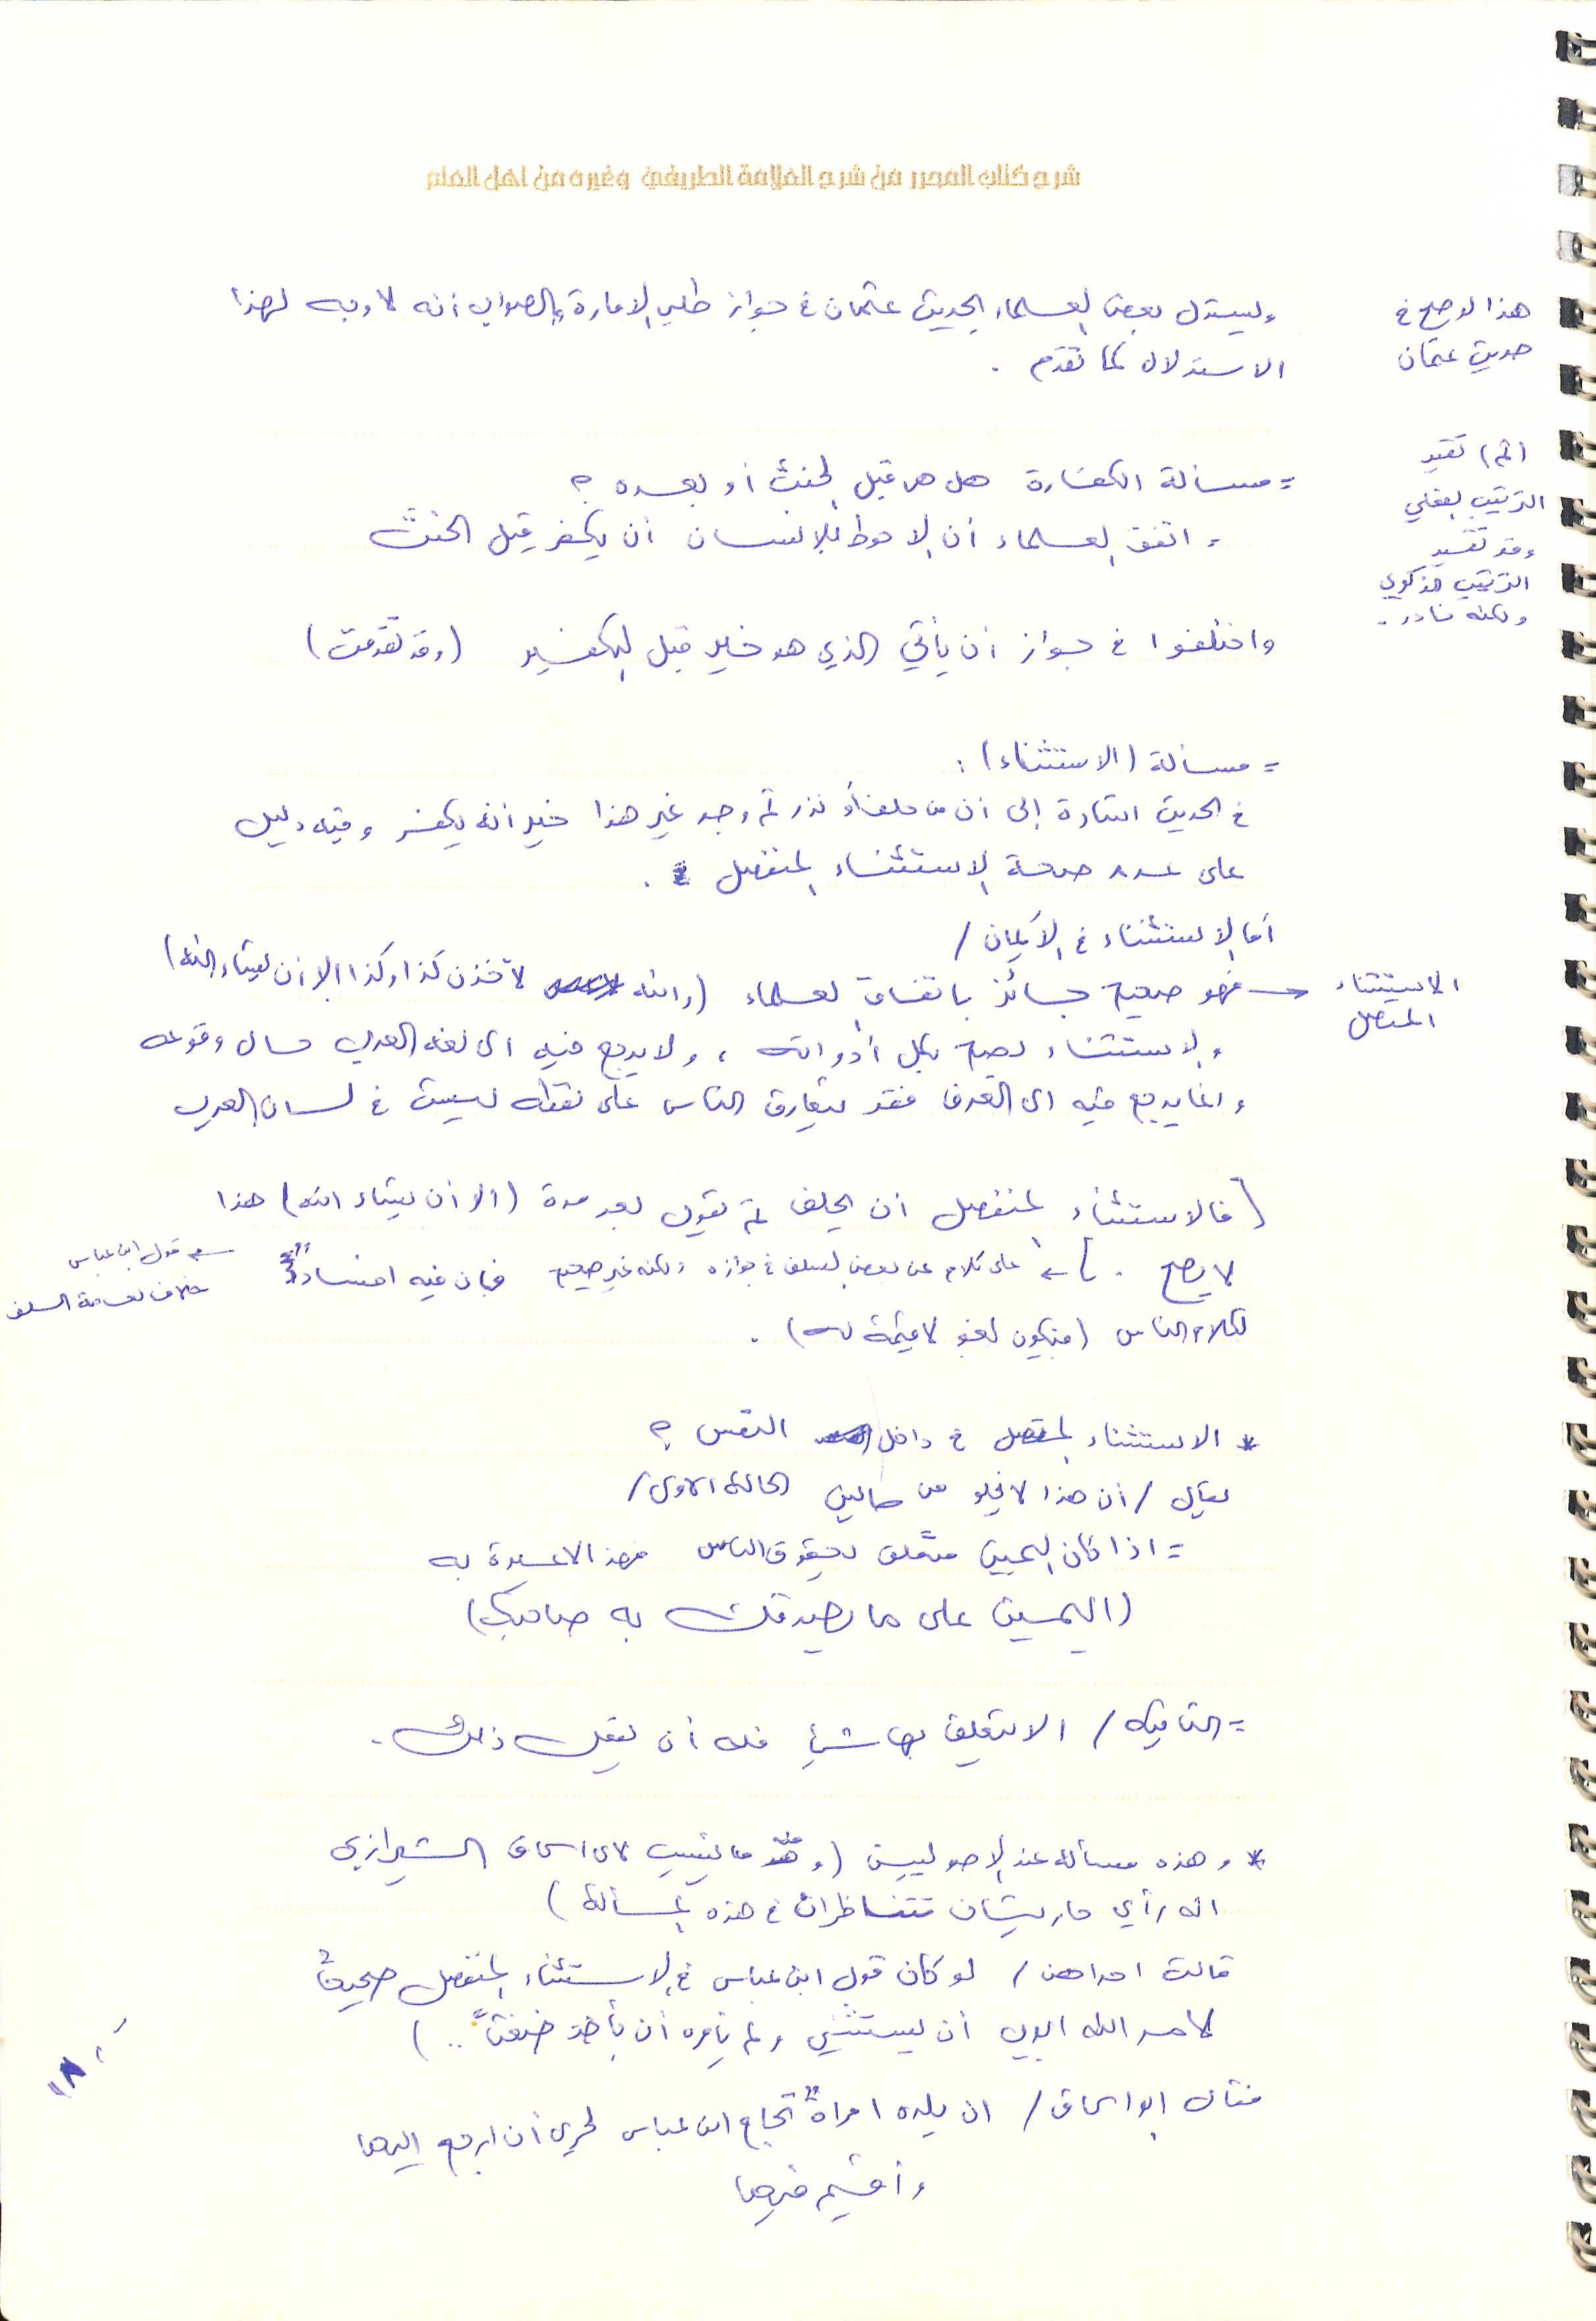 شرح كتاب المحرر من شرح العلامة الطريفي وغيره من اهل العلم
ويستدل بعض العلماء بحديث عثمان في جواز طلب الامارة والصواب أنه لا وجه لهذا
الاستدلال كما تقدم .
هذا لا يصح في
حديث عثمان
= مسألة الكفارة هل هي قبل الحنث أو بعده ؟
(ثم) تفيد
الترتيب الفعلي
وقد تفيد
الترتيب الذكوري
ولكنه نادر .
، اتفق العلماء أن الاحوط للانسان أن يكفر قبل الحنث
واختلفوا في جواز أن يأتي الذي هو خير قبل التكفير (وقد تقدمت)
= مسألة (الاستثناء) :
في الحديث اشارة إلى أن من حلف أو نذر ثم وجد غير هذا خير أنه يكفر وفيه دليل
على عدم صحة الاستثناء المنفصل .
أما الاستثناء في الأيمان /
الاستثناء
المتصل
فهو صحيح جائز باتفاق العلماء (والله لآخذن كذا وكذا إلا أن يشاء الله)
والاستثناء يصح بكل أدواته ، ولا يرجع فيه الى لغة العرب حال وقوعه
وانما يرجع فيه الى العرف فقد يتعارف الناس على لفظه ليست في لسان العرب
[ فالاستثناء المنفصل أن يحلف ثم يقول بعد مدة (الا أن يشاء الله) هذا
لا يصح . ] على كلام عن بعض السلف في جوازه ولكنه غير صحيح فإن فيه افسادٌ
قول ابن عباس
خلاف لعامة السلف
لكلام الناس (فيكون لغو لا قيمة له) .
* الاستثناء المتصل في داخل النفس ؟
يقال / أن هذا لا يخلو من حالين الحالة الاولى /
= اذا كان اليمين متعلق بحقوق الناس فهذا لا عبرة به
(اليمين على ما يصدقك به صاحبك)
= الثانية / الا يتعلق بها شيء فله أن يفعل ذلك .
* وهذه مسألة عند الاصوليين ( ما ينسب لابي اسحاق الشيرازي
انه رأي جاريتان تتناظران في هذه المسألة )
قالت احداهن / لو كان قول ابن عباس في الاستثناء المنفصل صحيحٌ
لأمر الله ايوب أن يستثني ولم يأمره أن يأخذ ضغثً .. )
فقال ابو اسحاق / ان بلده امراةٌ تحاج ابن عباس لحري أن ارجع اليها
وأقيم فيها
١٨٠